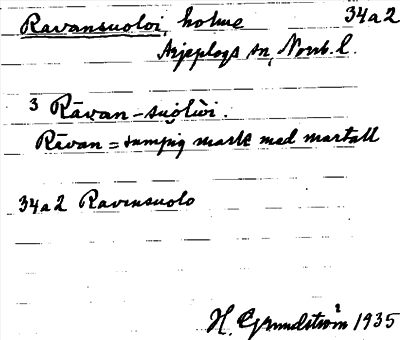 Ravansuoloi, holme 34a2
Arjeplogs sn, Norrb. l.
3 Rāvan-suo̯lùi.
Rāvan = sumpig mark med martall
34a2 Ravensuolo
H. Grundström 1935